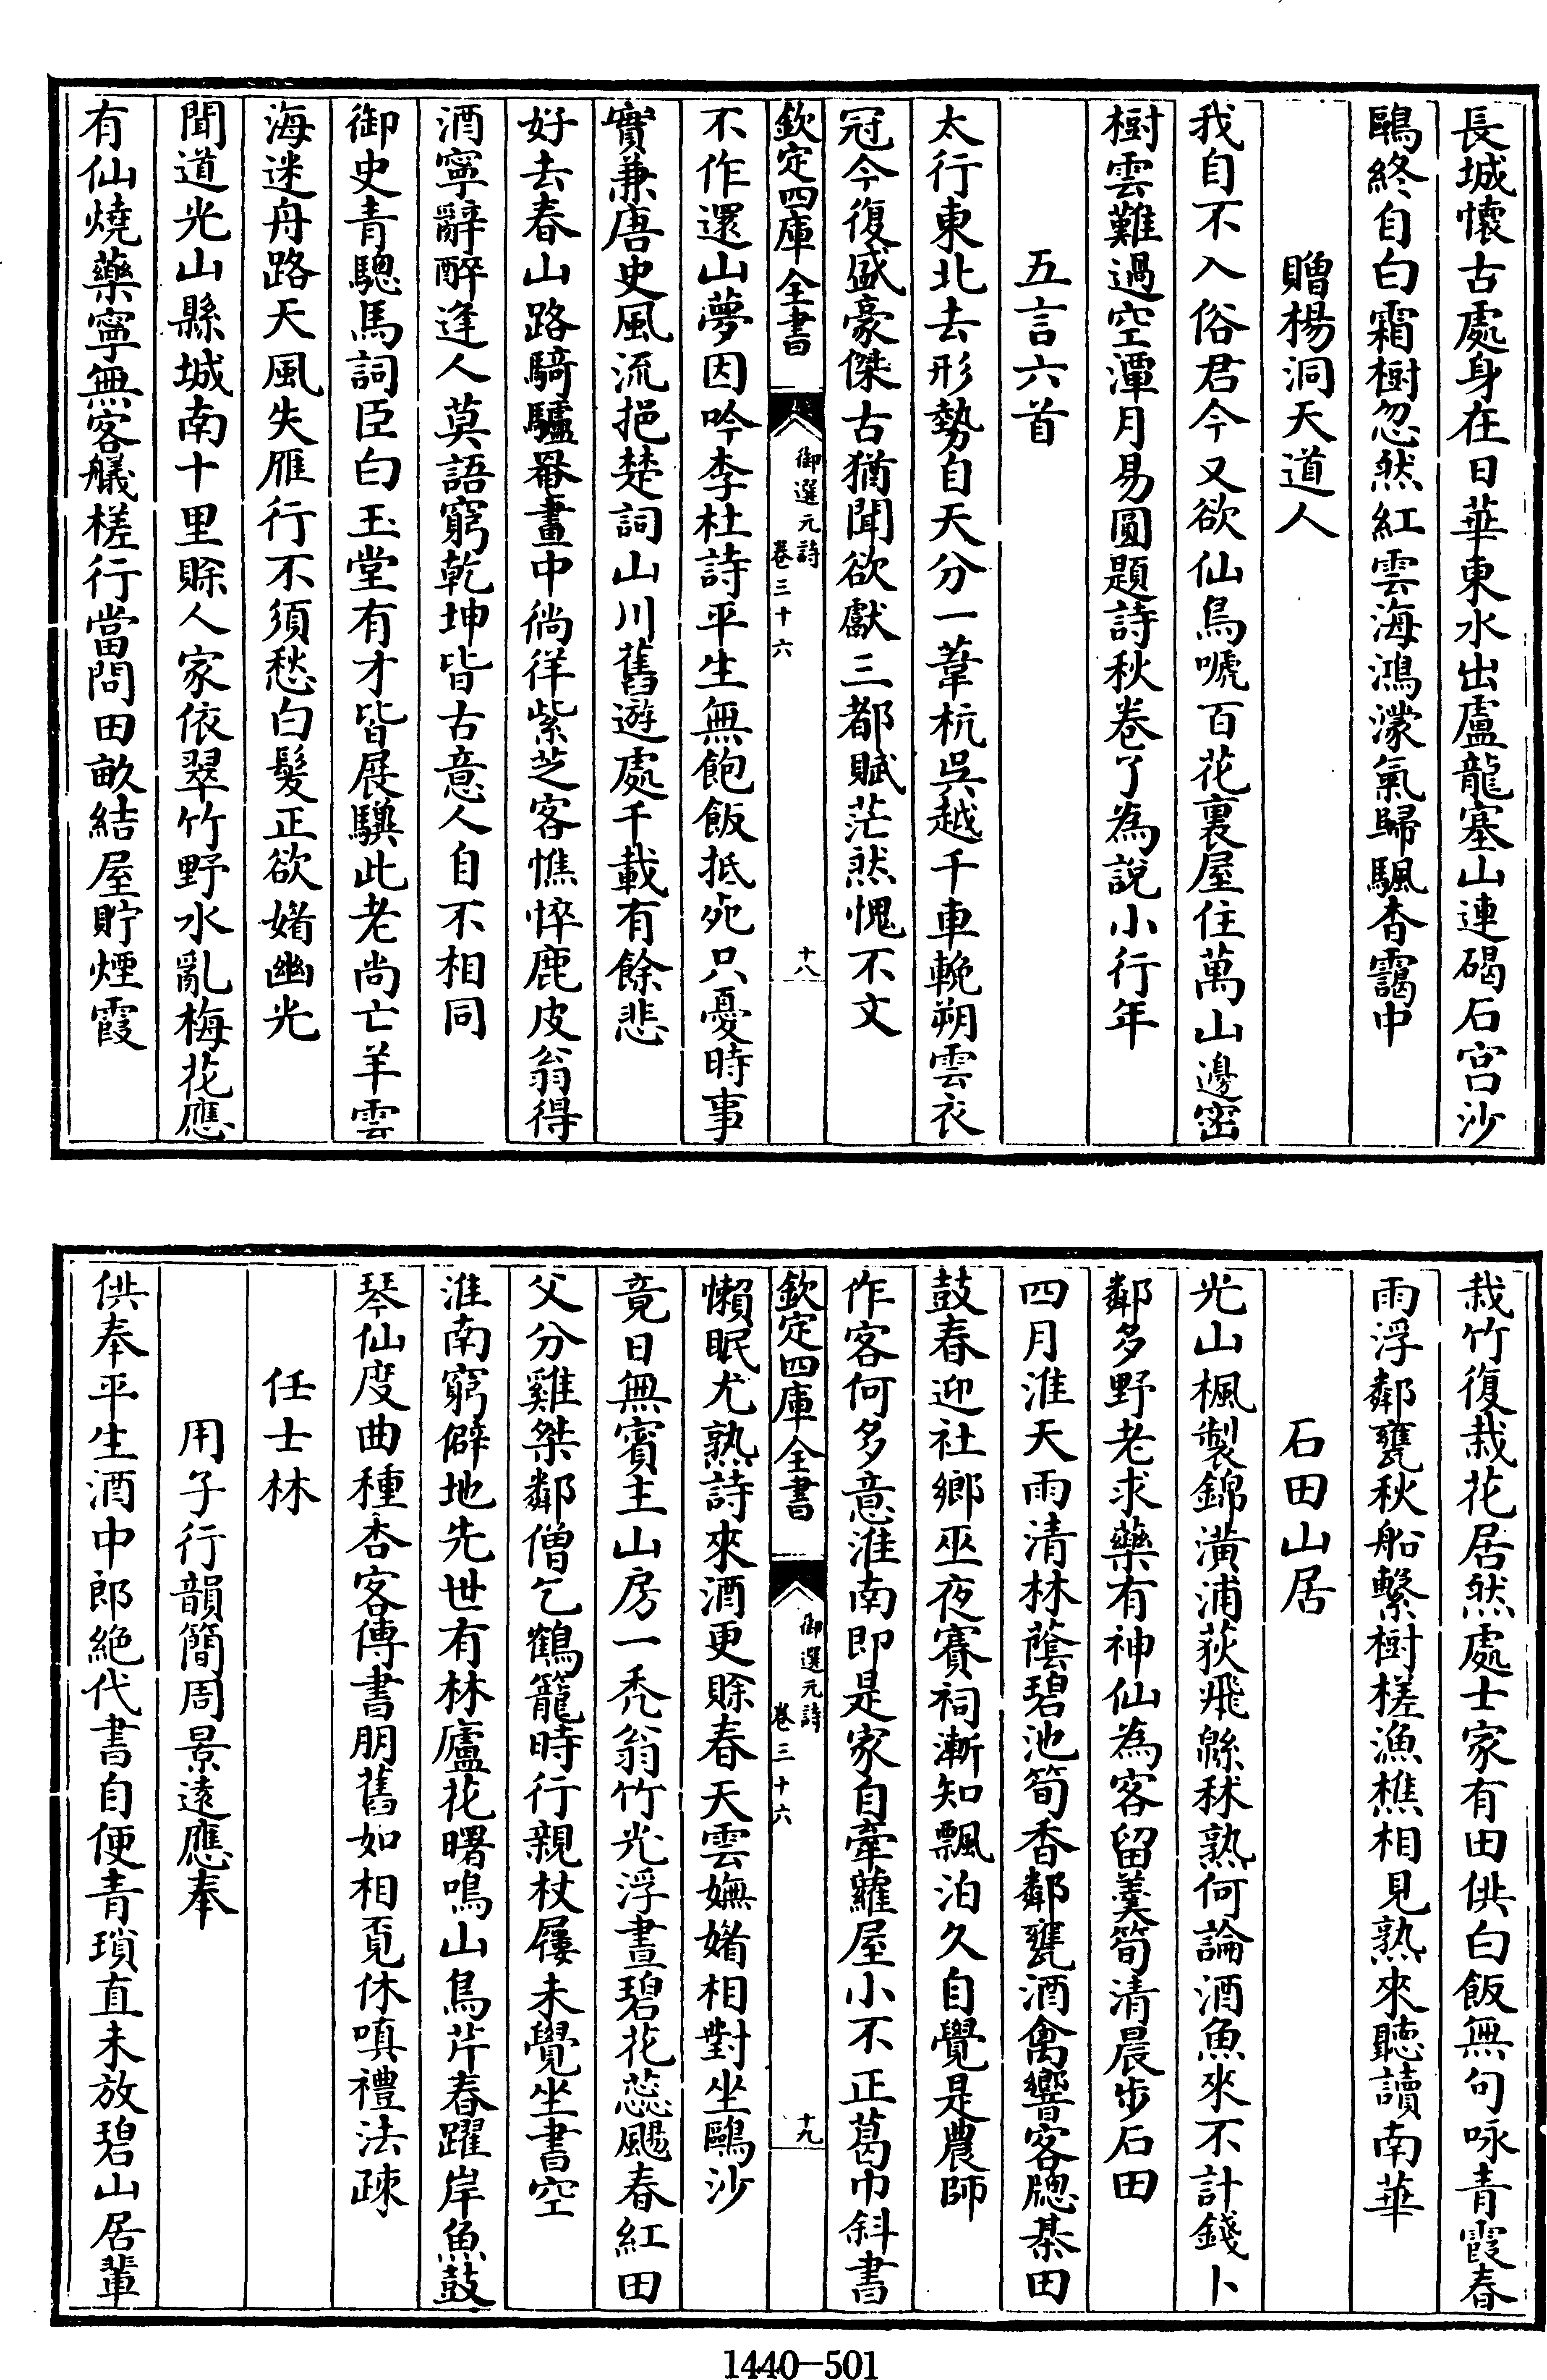 長城懷古處身在日華東水出盧龍塞山連碣石宮沙
鷗終自白霜樹忽然紅雲海鴻濛氣歸颿杳靄中
贈楊洞天道人
我自不入俗君今又欲仙鳥嗁百花裏屋住萬山邊密
樹雲難過空潭月易圓題詩秋卷了為說小行年
五言六首
太行東北去形勢自天分一葦杭吳越千車輓朔雲衣
冠今復盛豪傑古猶聞欲獻三都賦茫然愧不文
欽定四庫全書
御選元詩
卷三十六
十八
不作還山夢因吟李杜詩平生無飽飯抵死只憂時事
實兼唐史風流挹楚詞山川舊遊處千載有餘悲
好去春山路騎驢罨畫中徜徉紫芝客憔悴鹿皮翁得
酒寧辭醉逢人莫語窮乾坤皆古意人自不相同
御史青驄馬詞臣白玉堂有才皆展驥此老尚亡羊雲
海迷舟路天風失雁行不須愁白髮正欲媚幽光
聞道光山縣城南十里賒人家依翠竹野水亂梅花應
有仙燒藥寧無客艤槎行當問田畝結屋貯煙霞
栽竹復栽花居然處士家有田供白飯無句咏青霞春
雨浮鄰甕秋船繫樹槎漁樵相見熟來聽讀南華
石田山居
光山楓製錦潢浦荻飛緜秫熟何論酒魚來不計錢卜
鄰多野老求藥有神仙為客留羹筍清晨步石田
四月淮天雨清林蔭碧池筍香鄰甕酒禽響客牕棊田
鼓春迎社鄉巫夜賽祠漸知飄泊久自覺是農師
作客何多意淮南即是家自牽蘿屋小不正葛巾斜書
欽定四庫全書
御選元詩
卷三十六
十九
懶眠尤熟詩來酒更賒春天雲嫵媚相對坐鷗沙
竟日無賓主山房一禿翁竹光浮晝碧花蕊颺春紅田
父分雞桀鄰僧乞鶴籠時行親杖屨未覺坐書空
淮南窮僻地先世有林廬花曙鳴山鳥芹春躍岸魚鼓
琴仙度曲種杏客傳書朋舊如相覓休嗔禮法疎
任士林
用子行韻簡周景遠應奉
供奉平生酒中郎絕代書自便青瑣直未放碧山居輩
1440—501